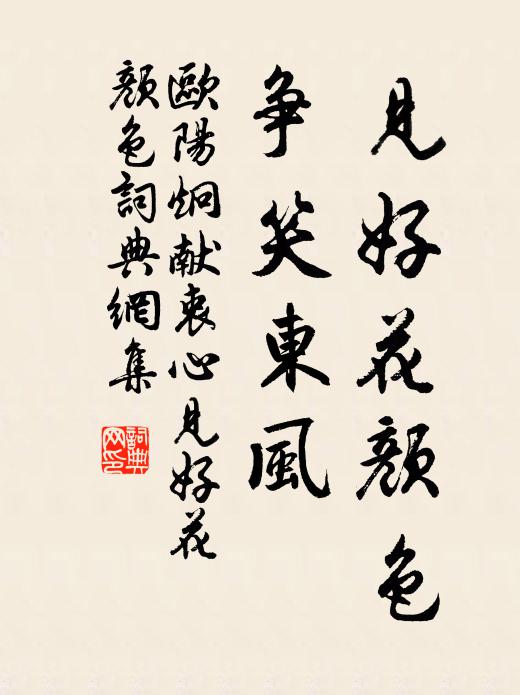 見好花顏色
争笑東風
歐陽炯献衷心見好花
顏色詞典網集
詞典
网印